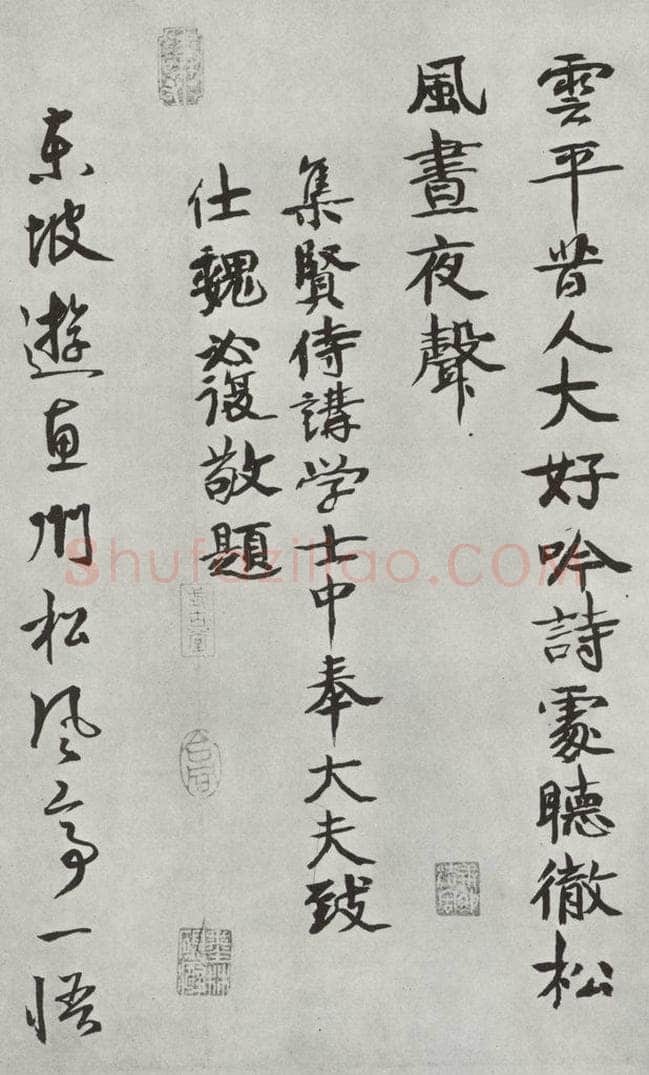 雲平昔人大好吟詩處聽徹松
風晝夜聲
集賢侍講学士中奉大夫致
仕魏必復敬題
東坡遊惠州松風亭一悟
式古堂
Shufaziliao.COM